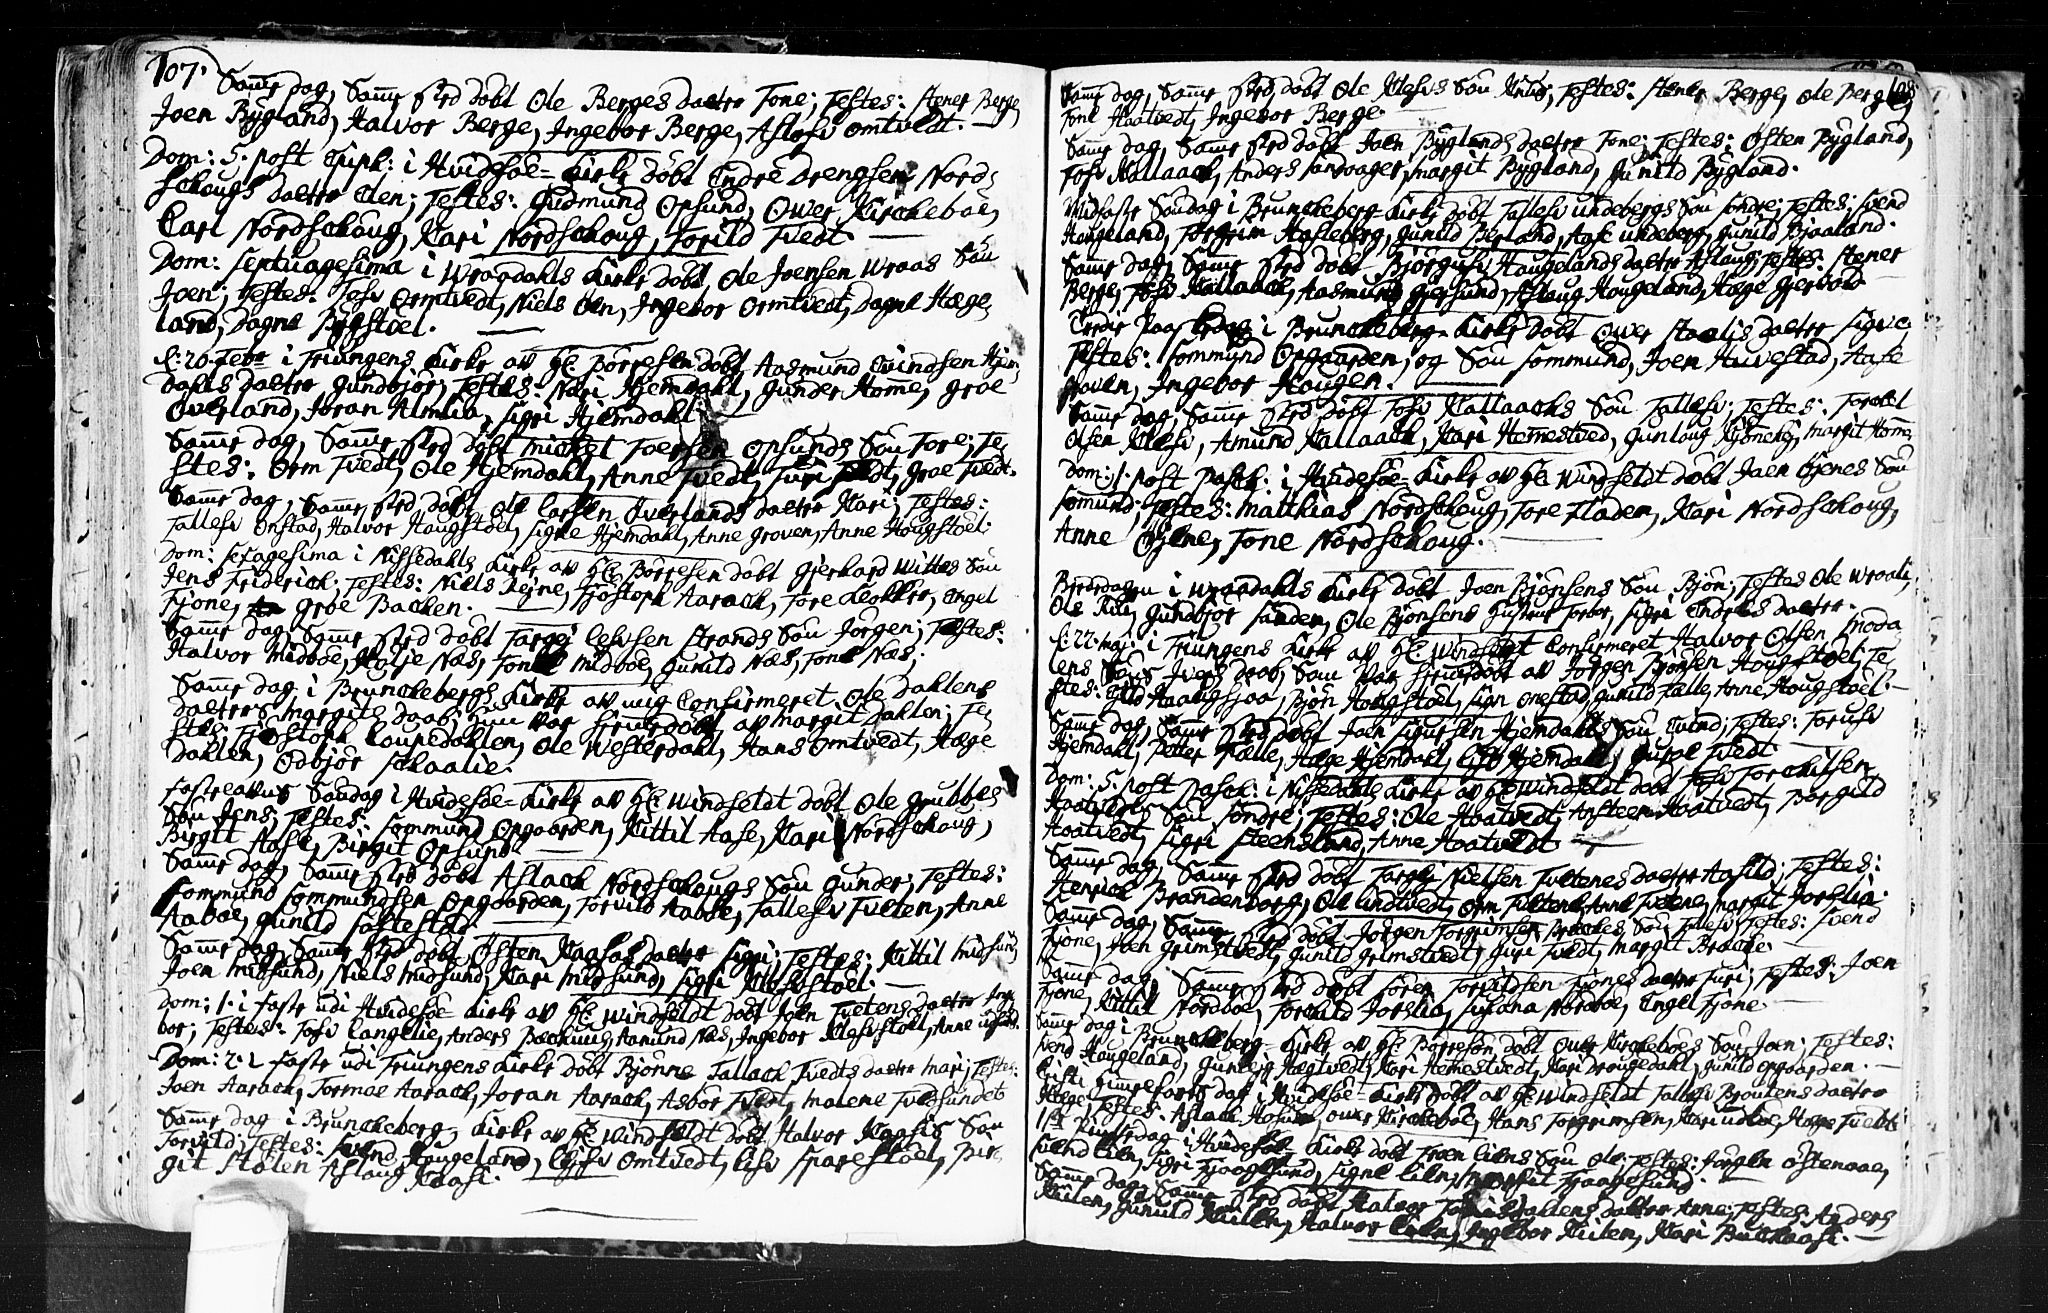 107.
Samme dag, Samme sted döbt Ole Berges daatter Tone; Testes: Stener Berge,
Joen Bÿgland, Halvor Berge, Ingebor Berge, Aslow Omtvedt.
Dom: 5. post Epiph: i Hvidesöe-Kirke döbt Endre Drengsen Nord-
schougs daatter Elen; Testes: Gudmund Opsund, Over Kirckeboe,
Carl Nordschoug, Kari Nordschoug, Torild Tvedt.
Dom: Septuagesima i Wraadahls Kirke döbt, Ole Joensen Wraas Sön
Joen; Testes: Tosv Ormtvedt, Niels Oen, Ingebor Ormtvedt, Dagne Hæge
land, Dagne Bÿgstoel.
d: 20 Febr i Triungens Kirke av Hr Börresen döbt Aasmund Evindsen Hjem-
dahls daatter Gundbjör; Testes: Nari Hjemdahl, Gunder Homme, Groe
Overland, Joran Almlia, Sigri Hjemdahl.
Samme dag, Samme sted döbt Mickel Toersen Opsunds Sön Tore; Te-
stes: Orm Tvedt, Ole Hjemdahl, Anne Tvedt, Turi Tvedt, Groe Tvedt.
Samme dag, Samme sted döbt Ole Carlsen Overlands daatter Kari; Testes:
Tallesv Onstad, Halvor Haugstoel, Signe Hjemdahl, Anne Groven, Anne Hougstoel.
Dom: Sexagesima i Nissedahls Kirke av Hr Börresen döbt Gjerhard Wittes Sön
Jens Friderich; Testes: Niels Rejne, Tjöstoph Aarack, Tore Klokker, Engel
Fjone, Groe Backen.
Samme dag, Samme sted döbt Targei Levsen Strands Sön Jörgen; Testes:
Halvor Midboe, Kolje Næs, Tone Midboe, Gunild Næs, Tone Næs;
Samme dag i Brunckebergs Kirke av mig Confirmeret Ole Dahlens
daatters Margits daab, Som var hjemedöbt av Margit Dahlen; Te-
stes: Tjöstoph Coupedahlen, Ole Westerdahl, Hans Omtvedt, Hæge
Dahlen, Odbjör Schaalie.
Fastelavns Söndag i Hvidesöe-Kirke av Hr Windfeldt döbt Ole Grubbes
Sön Jens; Testes: Sommund Opgaarden, Kittil Aase, Kari Nordschoug,
Birgit Aase, Birgit Opsund.
Samme dag, Samme sted döbt Aslack Nordschougs Sön Gunder; Testes:
Sommund Sommundsen Opgaarden, Torvild Aaboe, Tallesv Tveten, Anne
Aaboe, Gunild Fostestad.
Samme dag, Samme sted döbt Östen Kaasas daatter Sigri; Testes: Kittil Midsund,
Joen Midsund, Niels Midsund, Kari Midsund, Sigri Klevstoel.
Dom: 1. i Faste udi Hvidesöe Kirke av Hr Windfeldt döbt Joen Tvetens daatter Inge
bor; Testes: Tosv Langelie, Anders Backung, Aamund Næs, Ingebor Klevstoel, Anne
Dom: 2. i Faste udi Triungens Kirke döbt Bjönne Tallack Tvedts daatter Mari; Testes:
Joen Aarack, Tormoe Aarack, Joran Aarack, Asbör Tvedt, Malene Tvedsundet
Samme dag i Brunckeberg-Kirke av Hr Windfeldt döbt Halvor Kaasis Sön
Torvild; Testes: Svend Hougeland, Levsv Omtvedt, Lisv Sparestoel, Bir
git Stolen, Aslaug Kaasi.
108
Samme dag, Samme sted döbt Ole Klevs Sön Knud; Testes: Stener Berge, Ole Berge,
Tone Haatvedt, Ingebor Berge.
Samme dag, Samme sted döbt Joen Bÿglands daatter Tone; Testes: Östen Bÿgland,
Tosv Kallaack, Anders Sandvager, Margit Bÿgland, Gunild Bÿgland.
Midfaste Söndag i Brunckeberg-Kirke döbt Tallesv Undebergs Sön Sondre; Testes: Svend
Hougeland, Torgrim Hasleberg, Gunild Berland, Aase Undeberg, Gunild Bjaaland.
Samme dag, Samme sted döbt Björgulv Haugelands daatter Aslaug; Testes: Stener
Berge, Tosv Kallaack, Aasmund Gjersund, Aslaug Hougeland, Hæge Gjervold
Tredie Paaskedag i Brunckeberg-Kirke döbt Over Staalis daatter Signe;
Testes: Sommund Opgaarden, og Sön Sommund, Joen Halvestad, Aase
Groven, Ingebor Hougen.
Samme dag, Samme sted döbt Tosv Kallaacks Sön Tallesv; Testes: Torkel
Olsen Klesv, Amund Kallaack, Kari Hemestved, Gunloug, Margit Homme.
Dom: 1. post Pasch: i Hvidesöe-Kirke av Hr Windfeldt döbt Joen Öjenes Sön
Somund; Testes: Matthias Nordschoug, Tore Fladen, Kari Nordschoug,
Anne Öÿene, Tone Nordschoug.
Bededagen i Wraadahls Kirke döbt Joen Bjönsens Sön Bjön; Testes Ole Wraali,
Ole Rui, Gundbjör Sanden, Ole Bjönsens hustrue Torbor, Sigri Endres daatter.
d: 22 Maj: i Triungens Kirke av Hr Windfeldt Confirmeret Halvor Olsen Snoda-
lens Söns Ivers daab, Som var hjemedöbt av Jörgen Bjönsen Hougstoel; Te-
stes: Gild Haaugsjaa, Bjön Hougstoel, Sign Onestad, Gunild Tælle, Anne Hougstoel.
Samme dag, Samme sted döbt Joen Sjursen Hjemdahls Sön Evind; Testes: Torusv
Hjemdahl, Petter Tælle, Hæge Hjemdahl, Lisv Hjemdahl, Gusoe Tvedt
Dom: 5. post Pasch: i Nissedahls Kirke av Hr Windfeldt döbt Tosv Torckilsen
Haatvedts Sön Sondre; Testes: Ole Haatvedt, Ansteen Haatvedt, Borgild
Haatvedt, Sigri Steensland, Anne Haatvedt
Samme dag, Samme sted döbt Targei Nielsen Tvetenes daatter Aasild; Testes:
Henrick Brandenborg, Ole Lindtvedt, Orm Tvetene, Anne Tvetene, Margit Jorslia.
Samme dag, Samme sted döbt Jörgen Torgrimsen Brackes Sön Tallesv; Testes: Svend
Fjone, Joen Grimstvedt, Gunild Grimstvedt, Guri Tvedt, Margit Bracke.
Samme dag, Samme sted döbt Sören Torkildsen Fjones daatter Turi; Testes: Joen
Fjone, Kittil Nordboe, Torkild Jorslia, Susana Nordboe, Engel Fjone.
Samme dag i Brunckeberg-Kirke av Hr Börresön döbt Over Kirckeboes Sön Joen; Testes:
Svend Haugeland, Gunleig Hægtvedt, Kari Hemestvedt, Kari Drougedahl, Gunild Opgaarden.
Christi Himelfarts dag i Hvidesöe-Kirke döbt av Hr Windfeldt Tallesv Broutens daatter
Hæge; Testes: Aslack, Over Kirckeboe, Hans Torgrimsen, Kari, Hæge Tvedt
1ste Pintsedag i Hvidesöe-Kirke döbt Troen Liens Sön Ole; Testes: Jörgen Östenaae,
Svend Lien, Sigri Fjaagesund, Signe Lien, Margit Fjaagesund.
Samme dag, Samme sted döbt Halvor Dahlens daatter Anne; Testes: Anders
Kilen, Gunild Kilen, Halvor Lien, Ingebor Kilen, Kari Buckaasi.